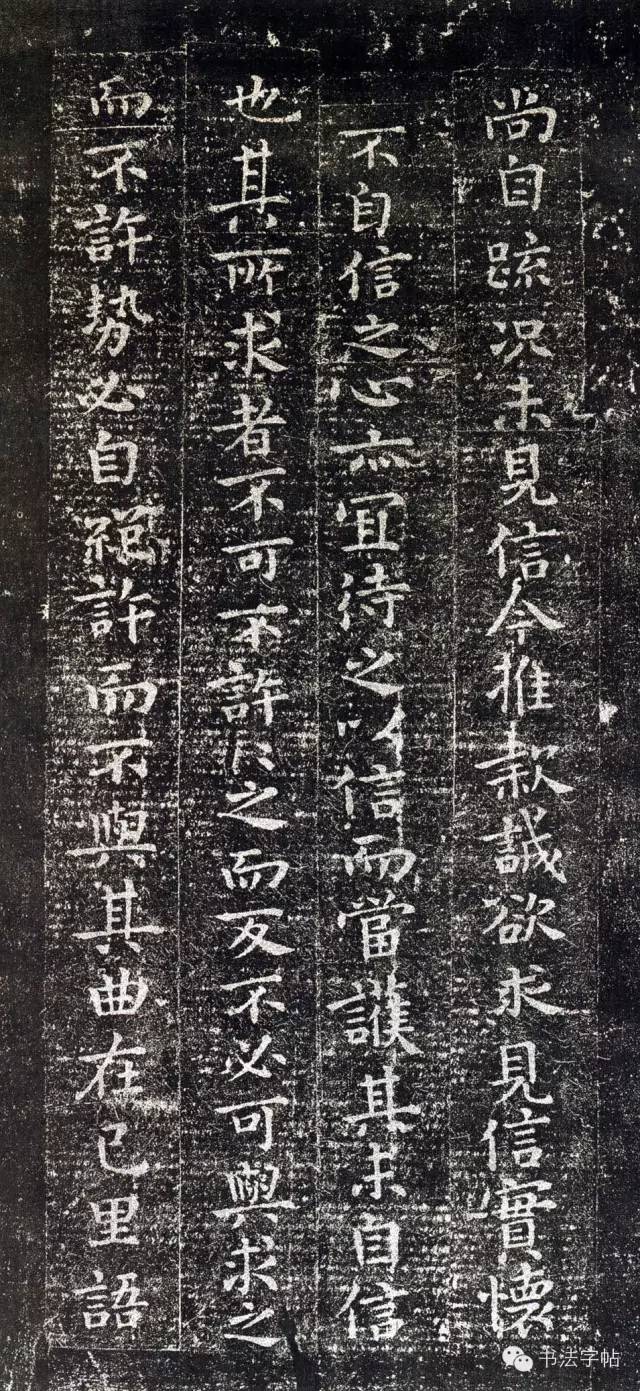 尚自疏况未見信今推款誠欲求見信實懷
不自信之心亦宜待之以信而當護其未自信
也其所求者不可不許許之而反不必可與求之
而不許勢必自絕許而不與其曲在己里語
书法字帖